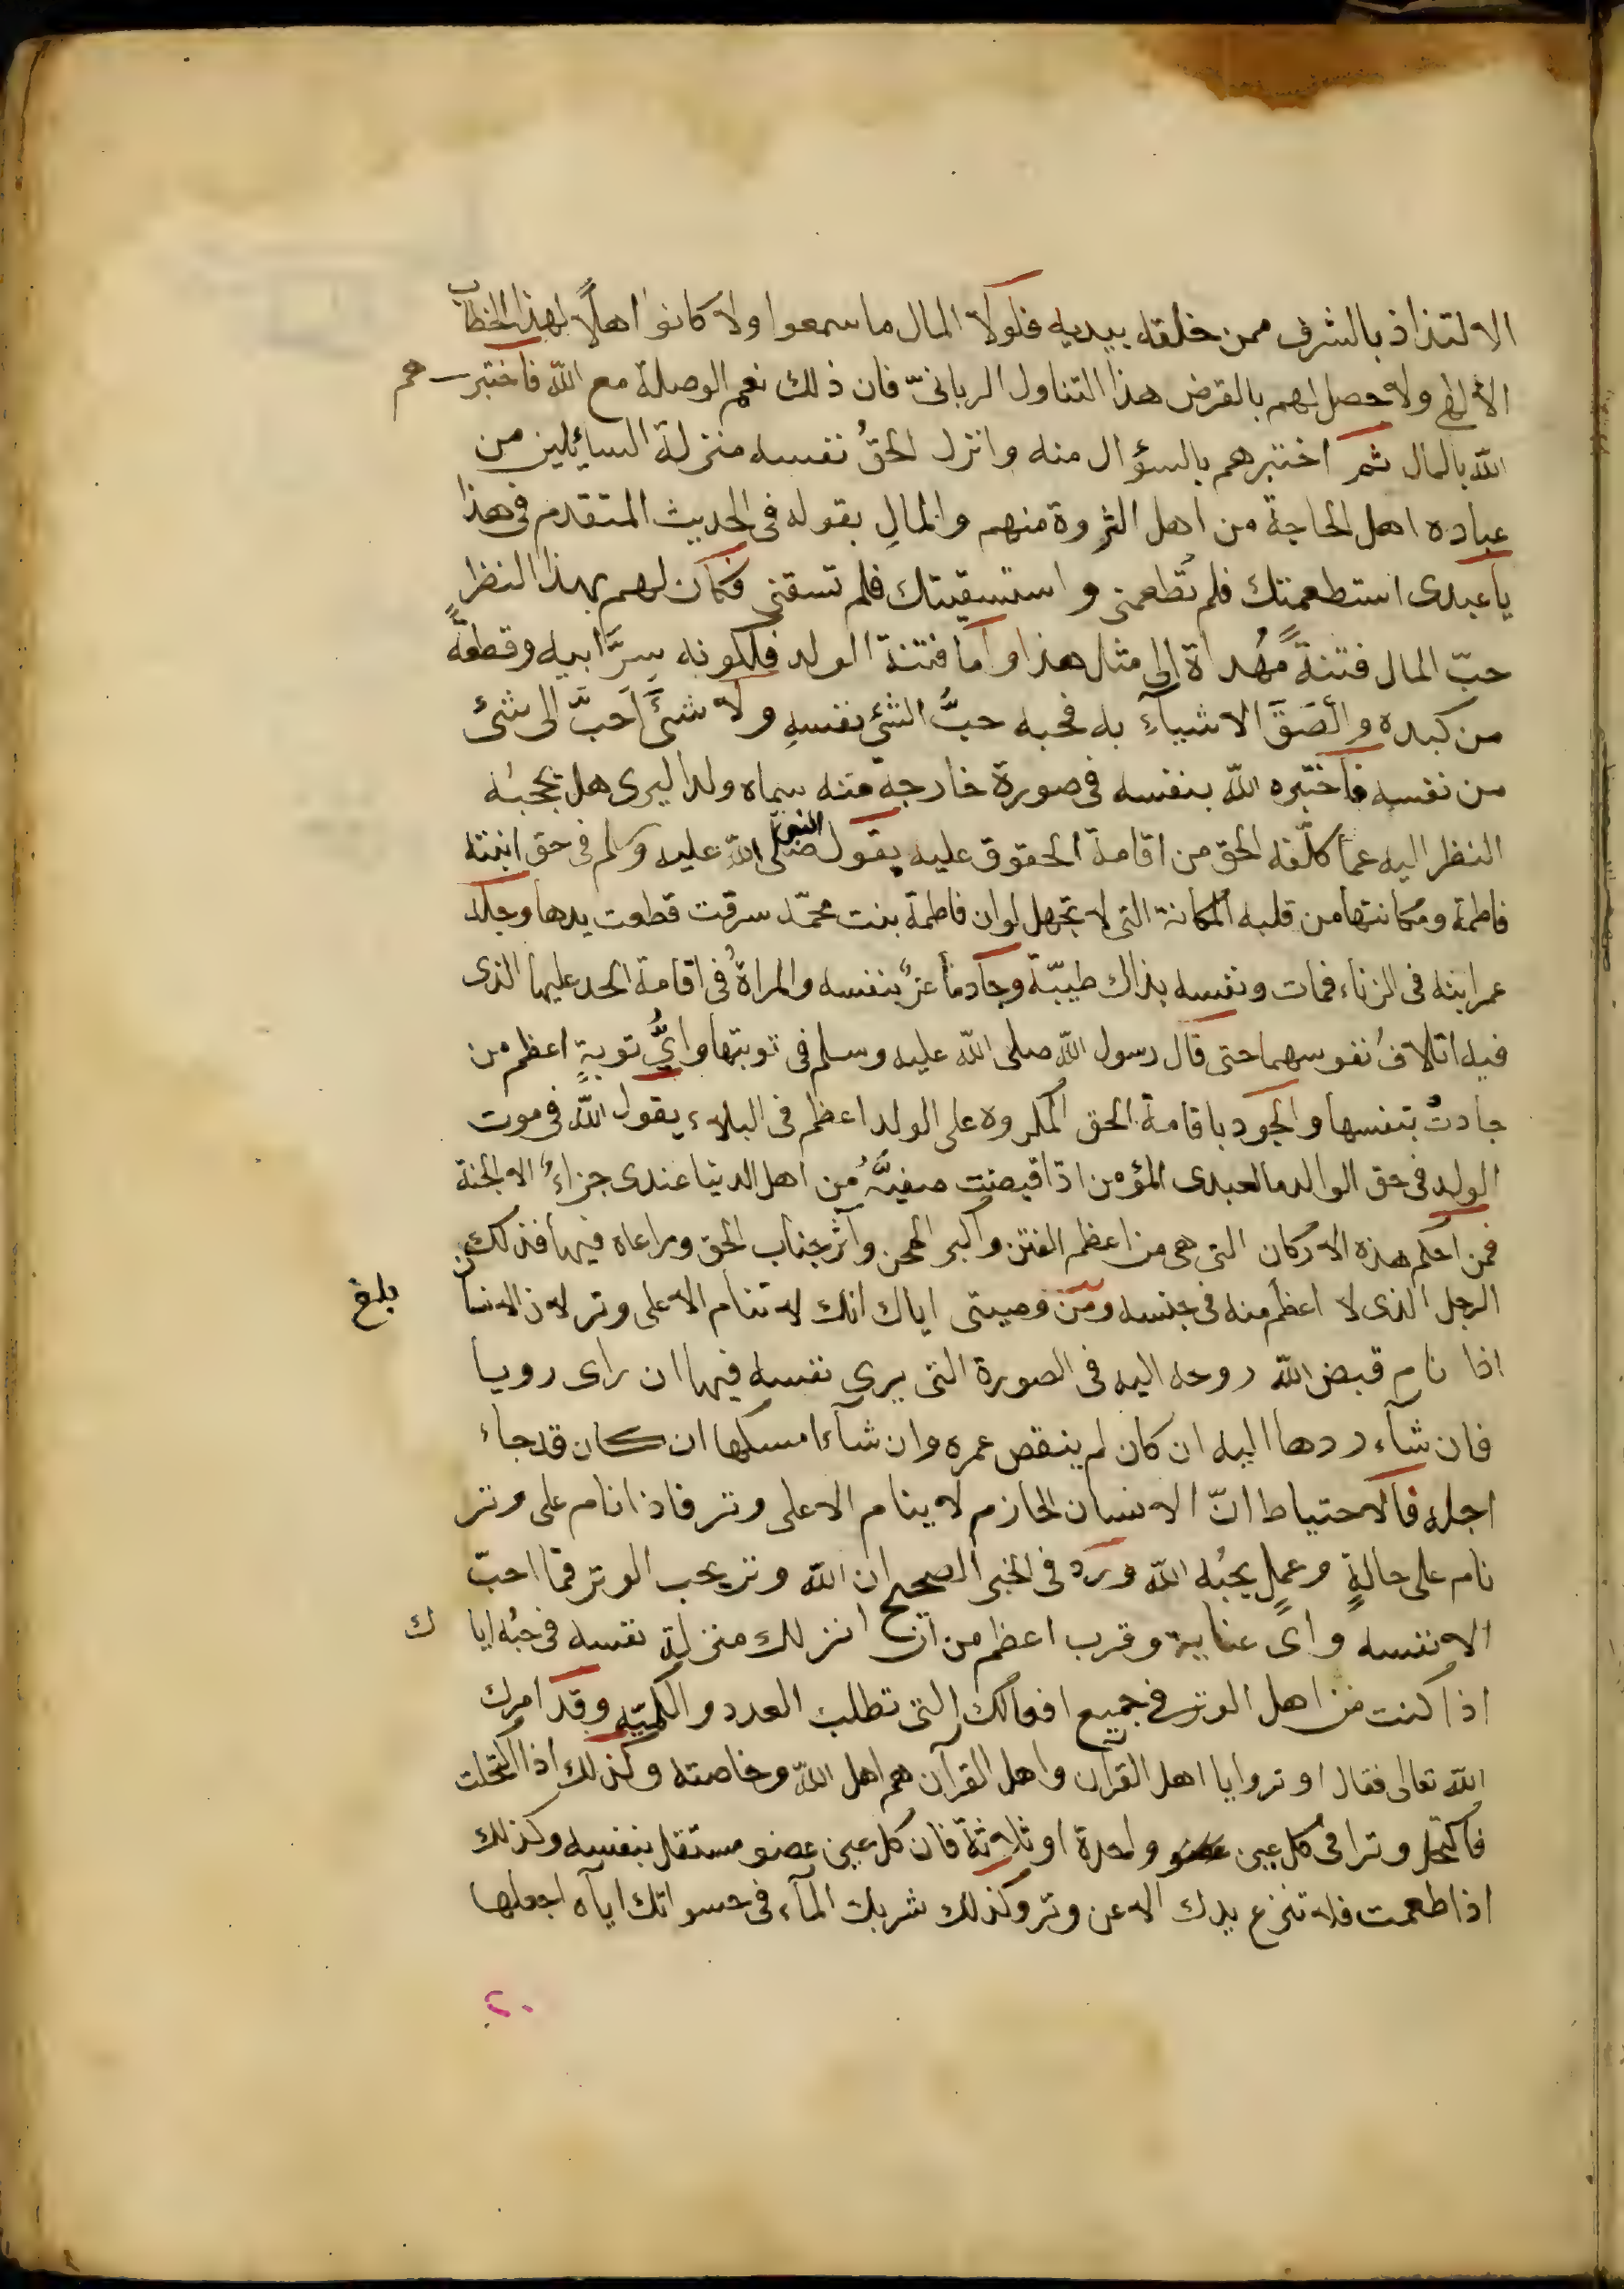 الالتذاذ بالشرف ممن خلقه بيديه فلولا المال ما سمعوا ولا كانوا اهلاً لهذا الخطاب
الالهي ولا حصل لهم بالقرض هذا التناول الربانىّ فان ذلك نعم الوصلة مع اللّه فاختبرهم
اللّه بالمال ثم اختبرهم بالسؤال منه وانزل الحقُ نفسه منزلة السائلين من
عباده اهل الحاجة من اهل الثروة منهم والمالِ بقوله فى الحديث المتقدم فى هذا
يا عبدى استطعمتك فلم تُطعمنى واستسقيتك فلم تسقنى فكان لهم بهذا النظر
حبّ المال فتنةً مُهداة الى مثل هذا واما فتنة الولد فلكونه سِرَّ ابيه وقطعةً
من كبده والصَقَ الاشيآءِ به فحبه حبُّ الشئ نفسهِ ولا شئَ احَبَّ الى شئ
من نفسه فاختبره اللّه بنفسه فى صورة خارجة منه سماه ولدا ليرى هل يحجبُه
النظر اليه عما كلّفه الحق من اقامة الحقوق عليه يقول النبى صلى اللّه عليه وسلم فى حق ابنته
فاطمة ومكانتها من قلبه المكانة التى لا تجهل لو ان فاطمة بنت محمّد سرقت قطعت يدها وجلد
عمر ابنه فى الزناء فمات ونفسه بذاك طيبّة وجاد ماعزٌ بنفسه والمراةُ فى اقامة الحد عليهما الذى
فيه اتلافُ نفوسهما حتى قال رسول اللّه صلى اللّه عليه وسلم فى توبتها وايُّ توبةٍ اعظم من
جادتْ بنفسها والجود باقامة الحق المكروه على الولد اعظم فى البلاء يقول اللّه فى موت
الولد فى حق الوالد ما لعبدى المؤمن اذا قبضت صفيَّهُ من اهل الدنيا عندى جزاءٌ الا الجنة
فمن احكم هذه الاركان التى هى من اعظم الفتن واكبر المحن وآثر جناب الحق وراعاه فيها فذلك
الرجل الذى لا اعظم منه فى جنسه ومن وصيتى اياك انك لا تنام الا على وتر لان الانسان
بلغ
اذا نام قبض اللّه روحه اليه فى الصورة التى يرى نفسه فيها ان راى رويا
فان شآء ردها اليه ان كان لم ينقص عمره وان شآء امسكها ان كان قد جاء
اجله فالاحتياط انّ الانسان الحازم لا ينام الا على وتر فاذا نام على وتر
نام على حالةٍ وعملٍ يحبُه اللّه ورد فى الخبر الصحيح ان اللّه وتر يحب الوتر فما احبّ
الا نفسه واىّ عناية وقرب اعظم من ان انزلك منزلة نفسه فى حبُه اياك
اذا كنت من اهل الوتر فى جميع افعالك التى تطلب العدد والكميّه وقد امرك
اللّه تعالى فقال اوتروا يا اهل القرآن واهل القرآن هم اهل اللّه وخاصته وكذلك اذا اكتحلت
فاكتحل وترا فى كل عين واحدة او ثلاثة فان كل عين عضو مستقل بنفسه وكذلك
اذا طعمت فلا تنزع يدك الا عن وتر وكذلك شربك المآء فى حسواتك اياه اجعلها
٢٠